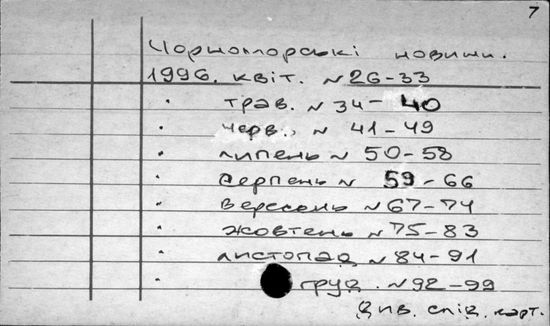 7
Чорноморські новини.
1996. квіт. N 26-33
" трав. N 34-40
" черв. N 41-49
" липень N 50-58
" серпень N 59-66
" вересень N 67-74
" жовтень N 75-83
" листопад N 84-91
" груд. N 92-99
Див. слід. карт.